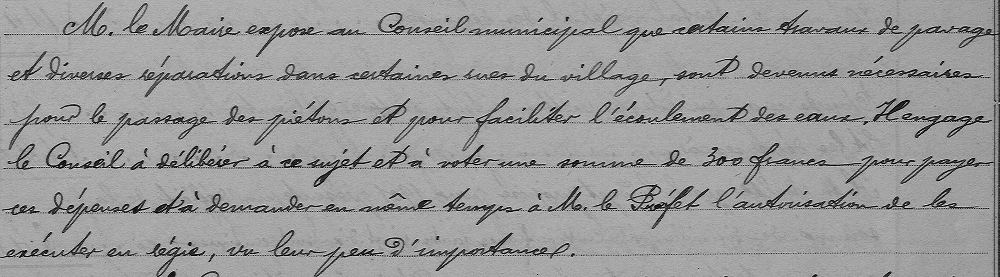 M. le Maire expose au Conseil municipal que certains travaux de pavage
et diverses réparations dans certaines rues du village, sont devenus nécessaires
pour le passage des piétons et pour faciliter l'écoulement des eaux. Il engage
le Conseil à délibérer à ce sujet et à voter une somme de 300 francs pour payer
ces dépenses et à demander en même temps à M. le Préfet l'autorisation de les
exécuter en régie, vu leur peu d'importance.